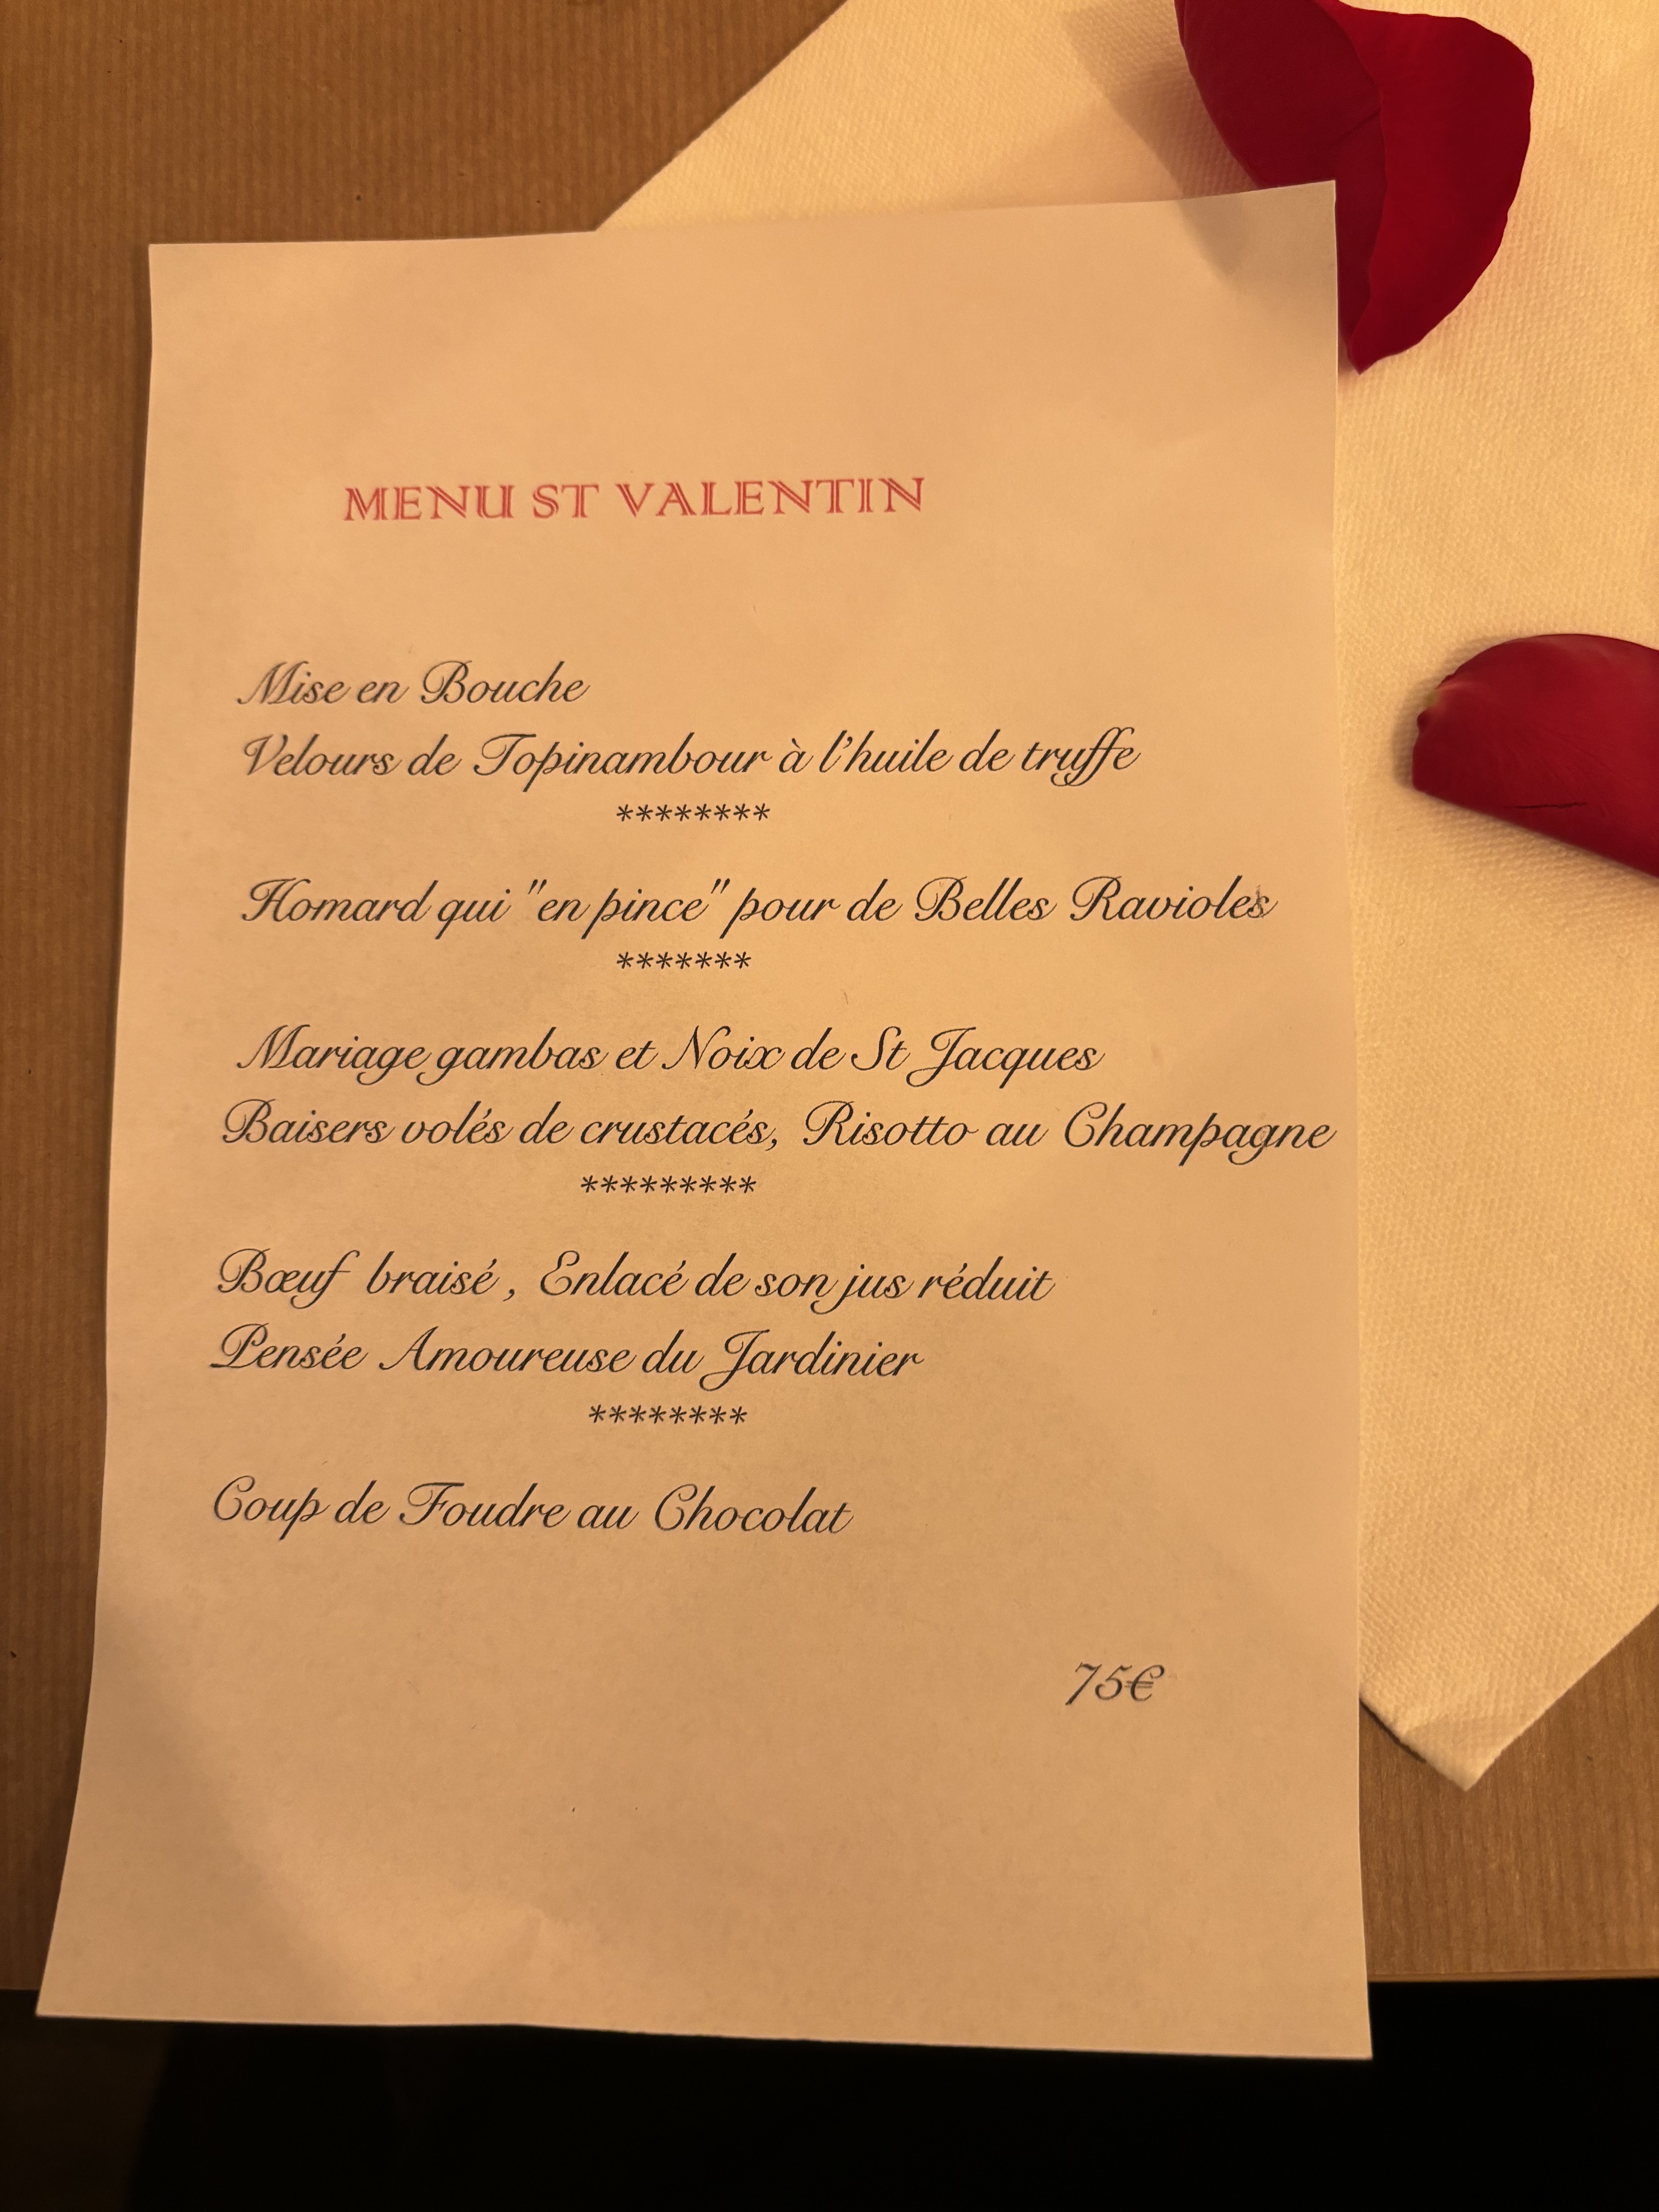 MENU ST VALENTIN
Mise en Bouche
Velours de Topinambour à l'huile de truffe
********
Homard qui "en pince" pour de Belles Ravioles
*******
Mariage gambas et Noix de St Jacques
Baisers volés de crustacés, Risotto au Champagne
*********
Bœuf braisé , Enlacé de son jus réduit
Pensée Amoureuse du Jardinier
********
Coup de Foudre au Chocolat
75€